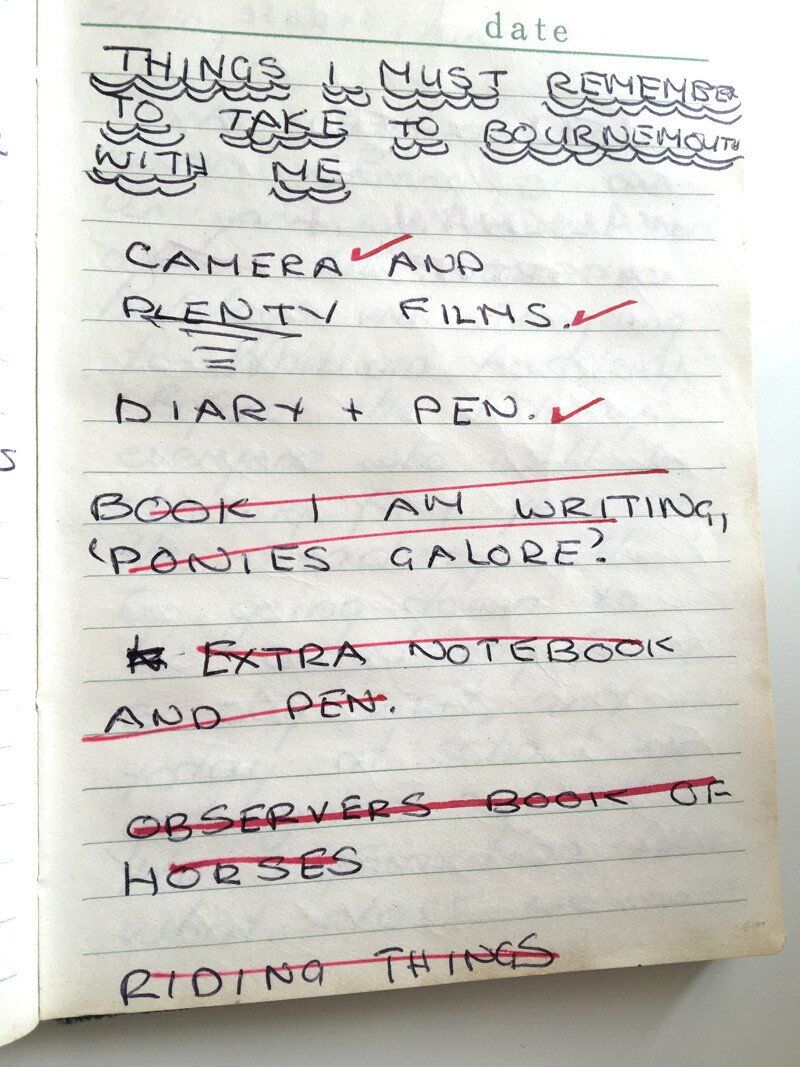 date
THINGS I MUST REMEMBER
TO TAKE TO BOURNEMOUTH
WITH ME
CAMERA ✓ AND
PLENTY FILMS. ✓
DIARY + PEN. ✓
BOOK I AM WRITING,
'PONIES GALORE'.
EXTRA NOTEBOOK
AND PEN.
OBSERVERS BOOK OF
HORSES
RIDING THINGS